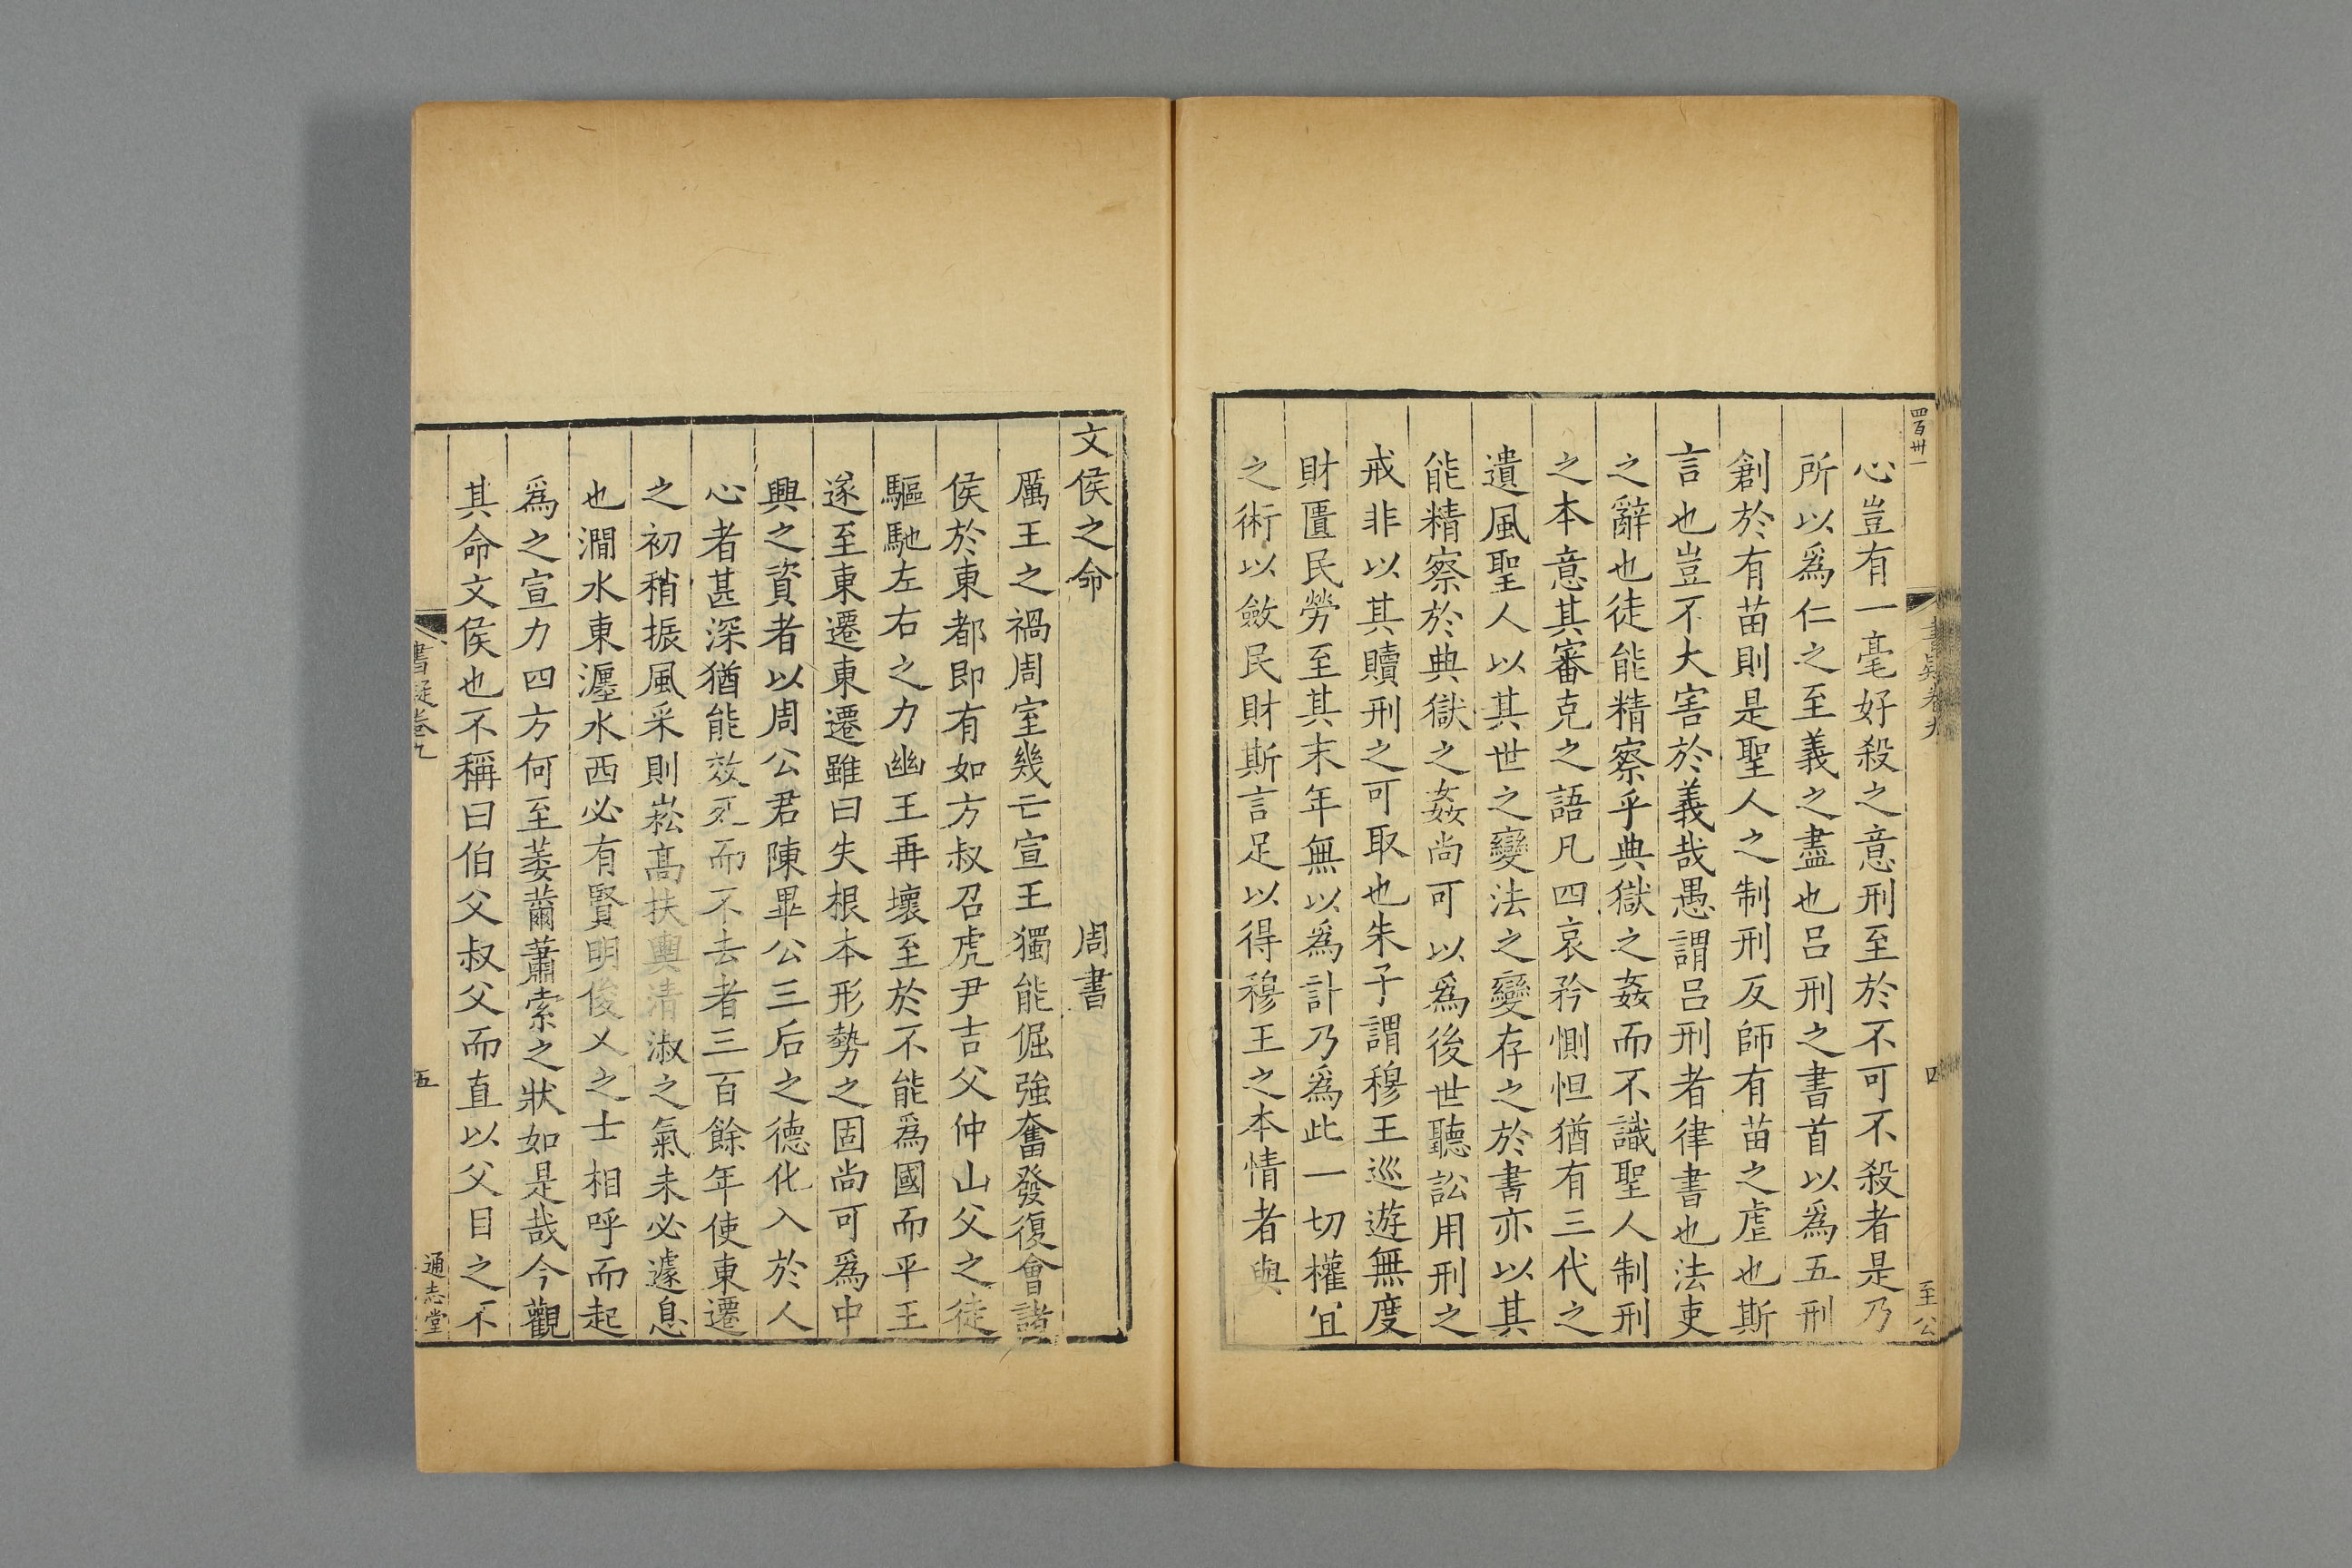 四百卅一
書疑卷九
四
至公
心豈有一毫好殺之意刑至於不可不殺者是乃
所以爲仁之至義之盡也吕刑之書首以爲五刑
創於有苗則是聖人之制刑反師有苗之虐也斯
言也豈不大害於義哉愚謂吕刑者律書也法吏
之辭也徒能精察乎典獄之姦而不識聖人制刑
之本意其審克之語凡四哀矜惻怛猶有三代之
遺風聖人以其世之變法之變存之於書亦以其
能精察於典獄之姦尚可以爲後世聽訟用刑之
戒非以其贖刑之可取也朱子謂穆王巡遊無度
財匱民勞至其末年無以爲計乃爲此一切權宜
之術以斂民財斯言足以得穆王之本情者與
文侯之命 周書
厲王之禍周室幾亡宣王獨能倔強奮發復會諸
侯於東都即有如方叔召虎尹吉父仲山父之徒
驅馳左右之力幽王再壞至於不能爲國而平王
遂至東遷東遷雖曰失根本形勢之固尚可爲中
興之資者以周公君陳畢公三后之德化入於人
心者甚深猶能效死而不去者三百餘年使東遷
之初稍振風采則崧高扶輿清淑之氣未必遽息
也澗水東瀍水西必有賢明俊乂之士相呼而起
爲之宣力四方何至萎薾蕭索之狀如是哉今觀
其命文侯也不稱曰伯父叔父而直以父目之不
書疑卷九
五
通志堂